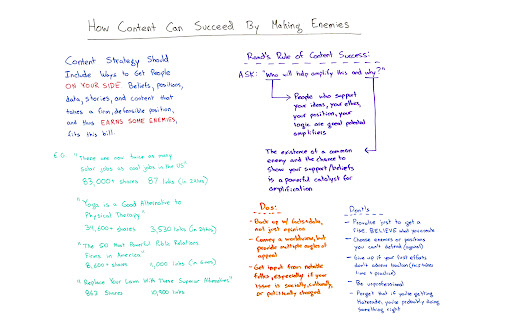 How Content Can Succeed By Making Enemies
Content Strategy Should
Include Ways to Get People
ON YOUR SIDE. Beliefs, positions,
data, stories, and content that
takes a firm, defensible position,
and thus EARNS SOME ENEMIES,
fits this bill.
E.G.
"There are now twice as many
solar jobs as coal jobs in the US"
83,000+ shares 87 links (in 2 sites)
"Yoga is a Good Alternative to
Physical Therapy"
34,600+ shares 3,530 links
"The 50 Most Powerful Public Relations
Firms in America"
8,600+ shares
"Replace Your Lawn With These Superior Alternatives"
863 shares 10,800 links
Rand's Rule of Content Success:
ASK: "Who will help amplify this and why?"
People who support
your ideas, your ethos,
your position, your
logic are great potential
amplifiers
The existence of a common
enemy and the chance to
show your support/beliefs
is a powerful catalyst for
amplification
Dos:
- Back up w/ facts+data,
not just opinion
- Convey a worldview, but
provide multiple angles of
appeal
- Get input from notable
folks, especially if your
issue is socially, culturally,
or politically charged
Don'ts
- Provoke just to get a
rise. BELIEVE what you create
- Choose enemies or positions
you can't defend
- Give up if your first efforts
don't
time + practice)
- Be unprofessional
- Forget that if you're getting
haterade, you're probably doing
something right